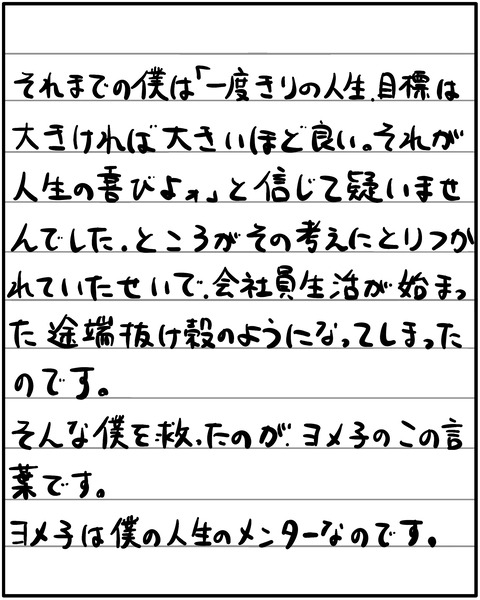 それまでの僕は「一度きりの人生、目標は
大きければ大きいほど良い。それが
人生の喜びよォ」と信じて疑いませ
んでした。ところがその考えにとりつか
れていたせいで、会社員生活が始まっ
た途端抜け殻のようになってしまった
のです。
そんな僕を救ったのが、ヨメ子のこの言
葉です。
ヨメ子は僕の人生のメンターなのです。